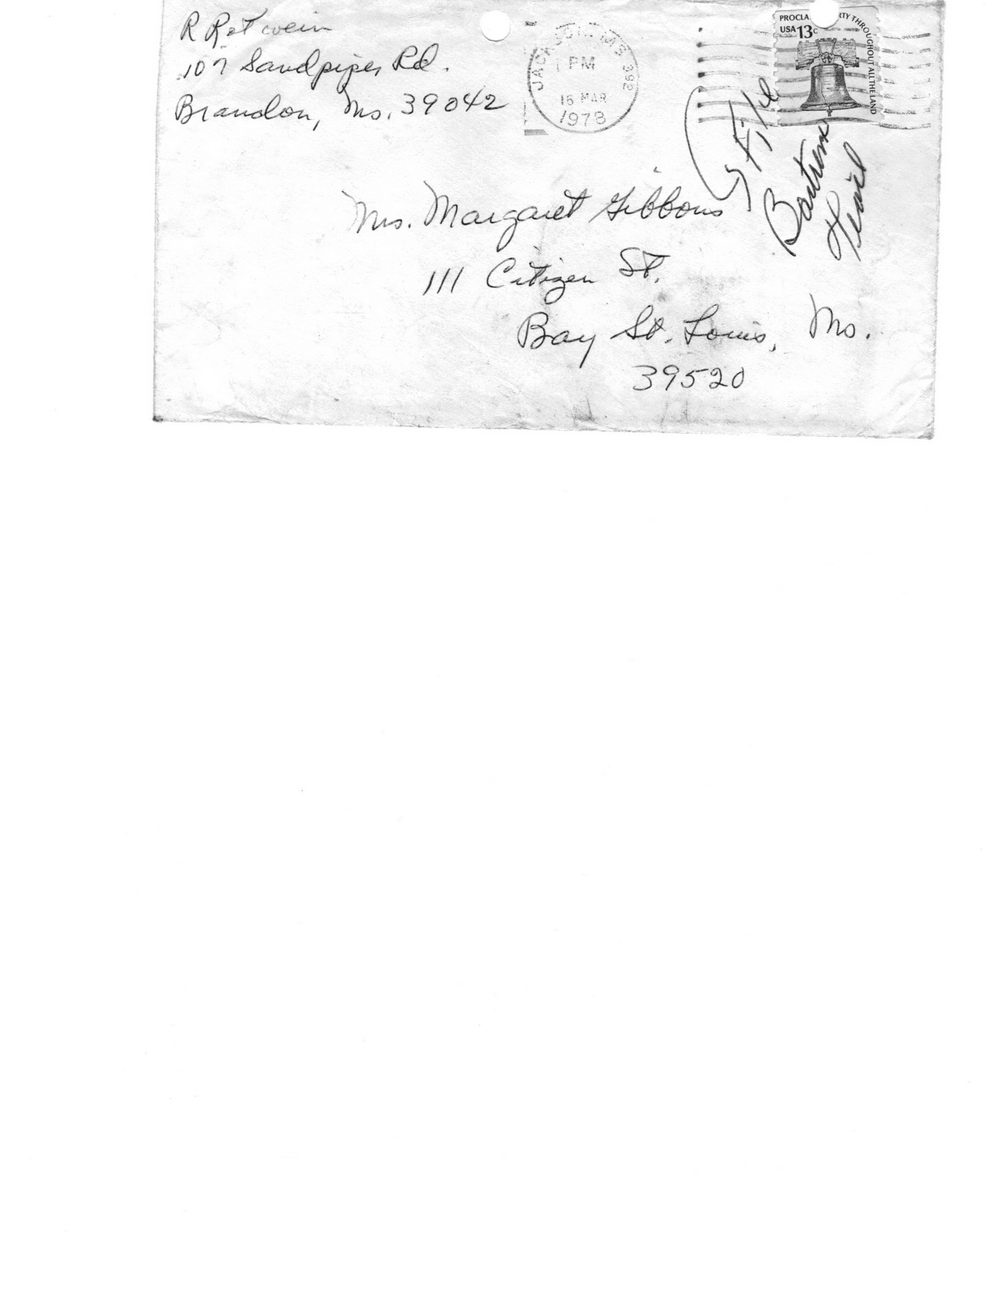 R Retwein
107 Sandpiper Rd.
Brandon, Ms. 39042
JACKSON, MS 392
PM
15 MAR
1978
PROCLA RTY THROUGHOUT ALL THE LAND
USA 13c
File
Mrs. Margaret Gibbons
111 Citizen St.
Bay St. Louis, Ms.
39520